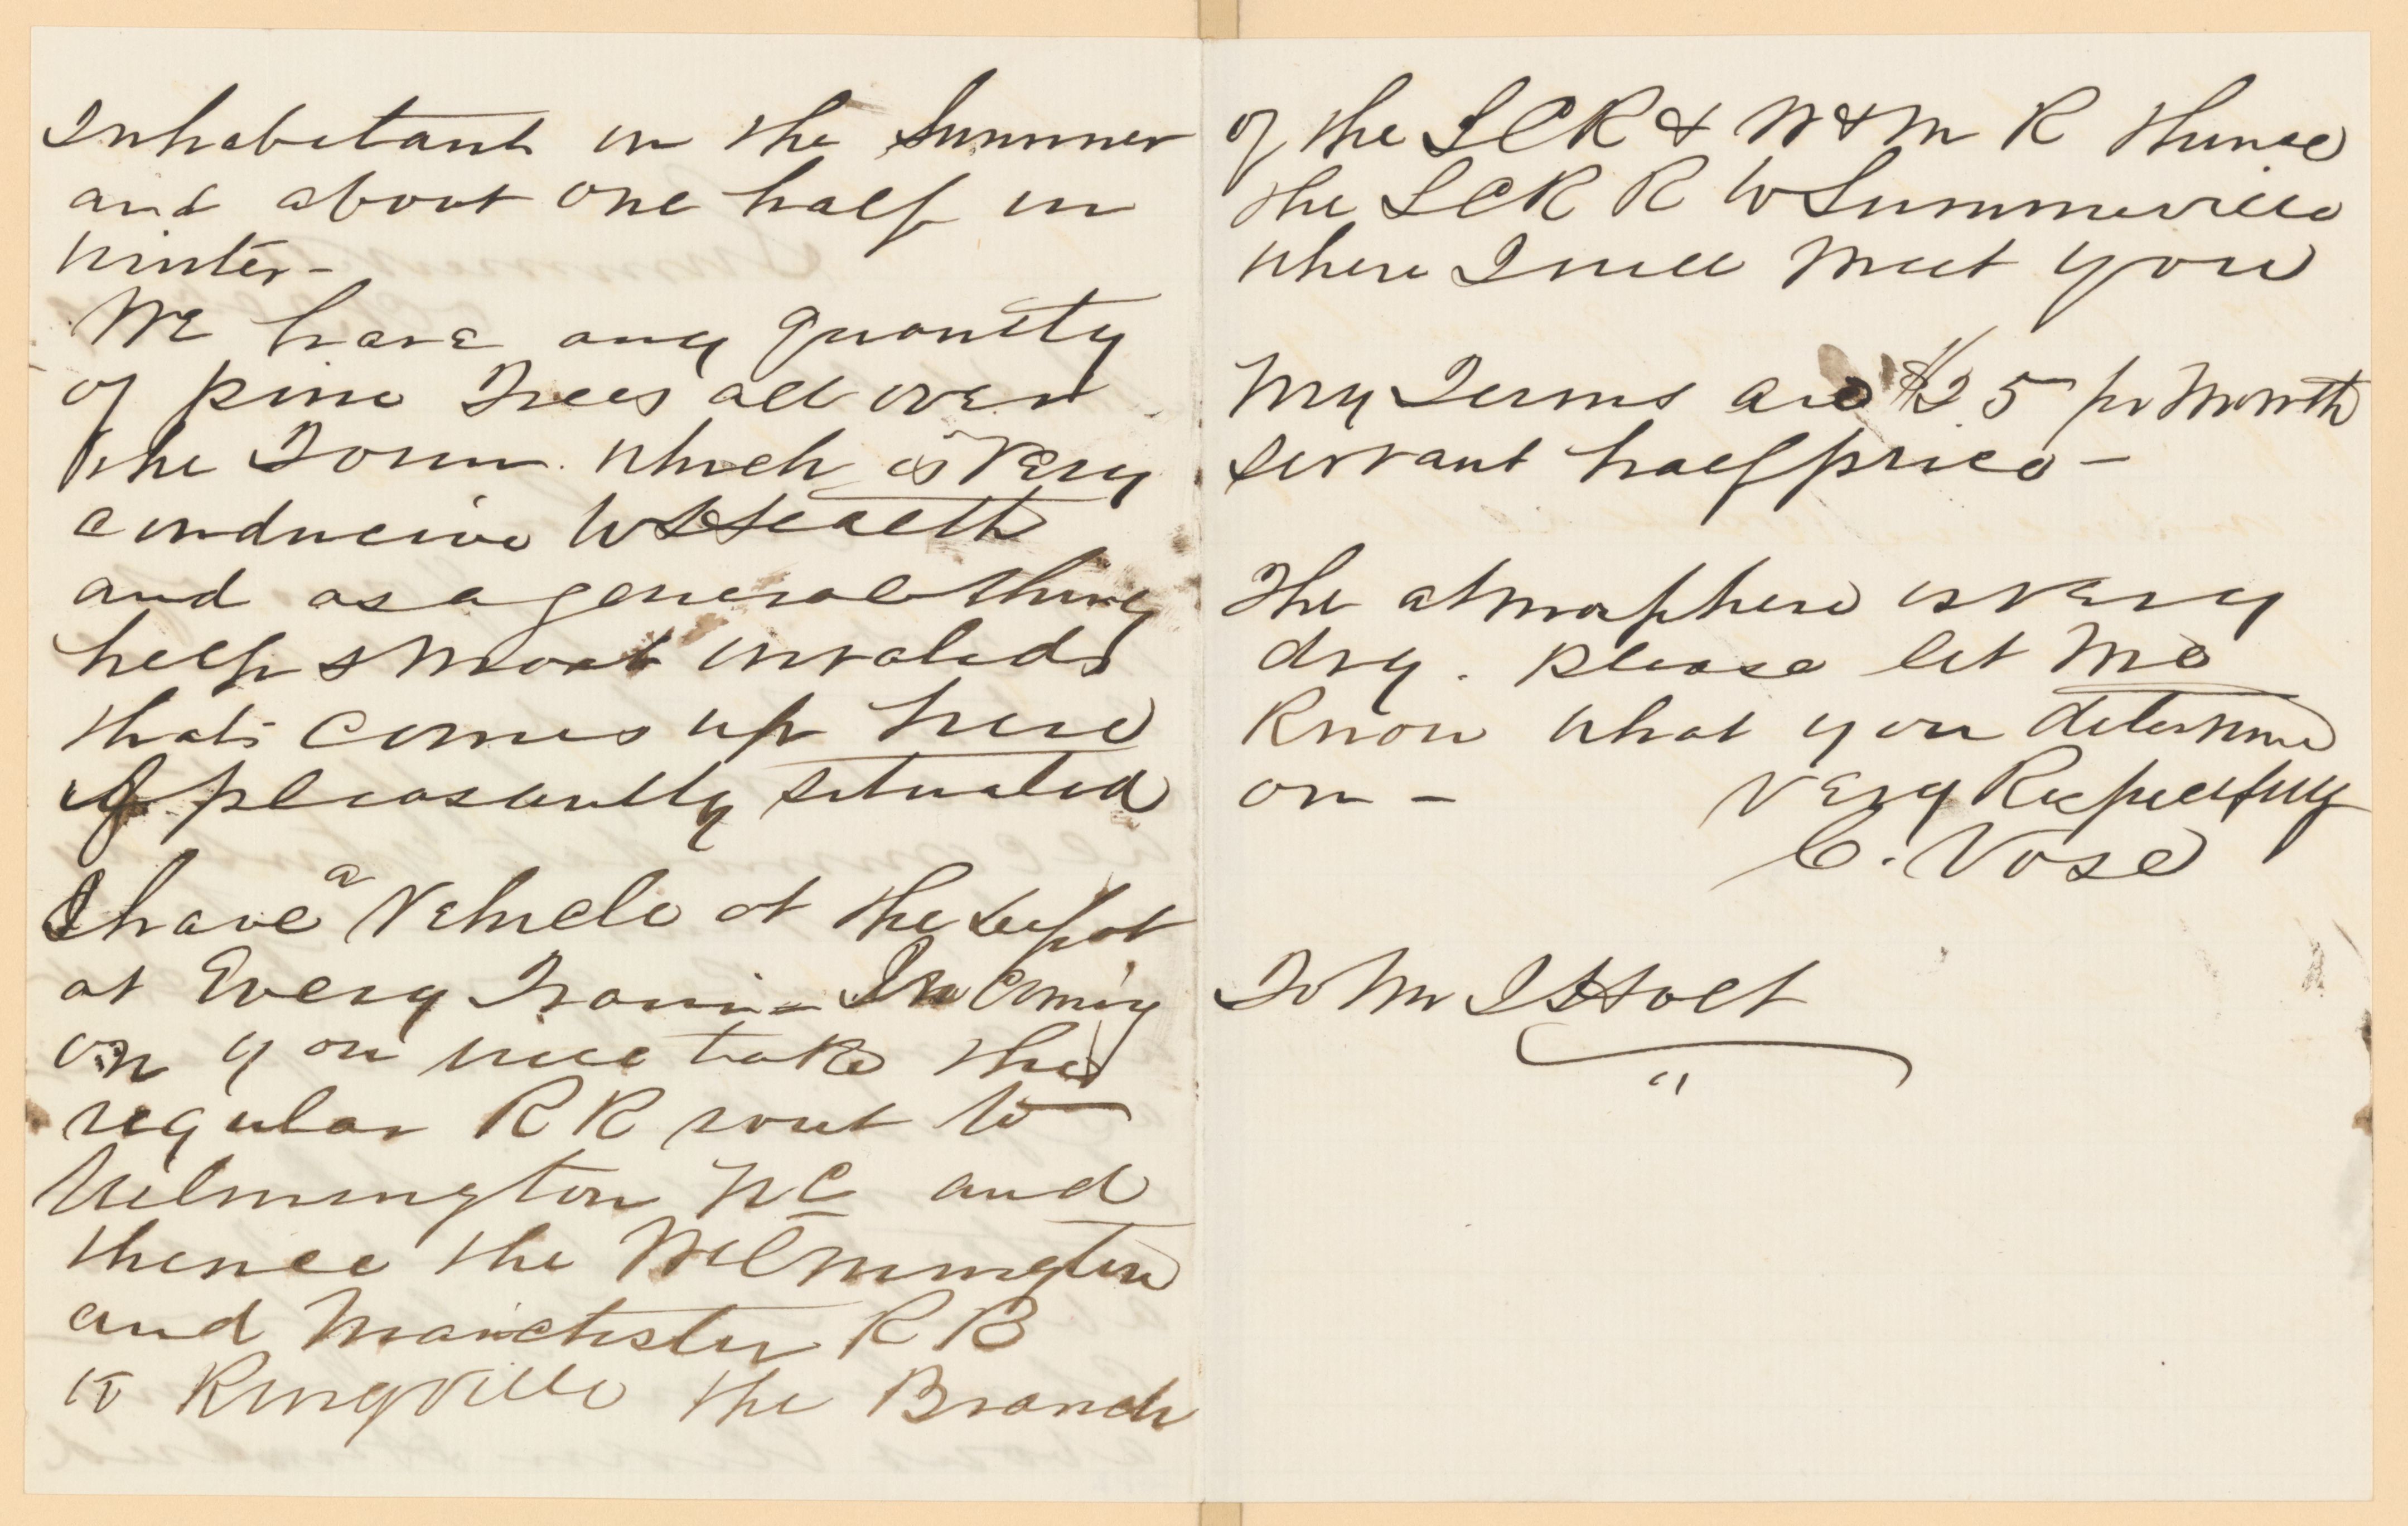 Inhabitant in the Summer
and about one half in
winter-
We have any quantity
of pine Trees all over
the Town. which is very
conducive to Health
and as a general thing
helps most invalids
that comes up here
if pleasantly situated
I have a Vehicle at the depot
at Every Train - In coming
on you will take the
regular RR rout to
Wilmington NC and
thence the Wilmington
and Manchester RR
to Kingville the Branch
of the SCR & W & M R thence
the SCR R to Summerville
where I will meet you
My Terms are $25 pr Month
servant half price -
The atmosphere is very
dry. Please let me
know what you determine
on - Very Respectfully
C. Vose
To Mr Holt